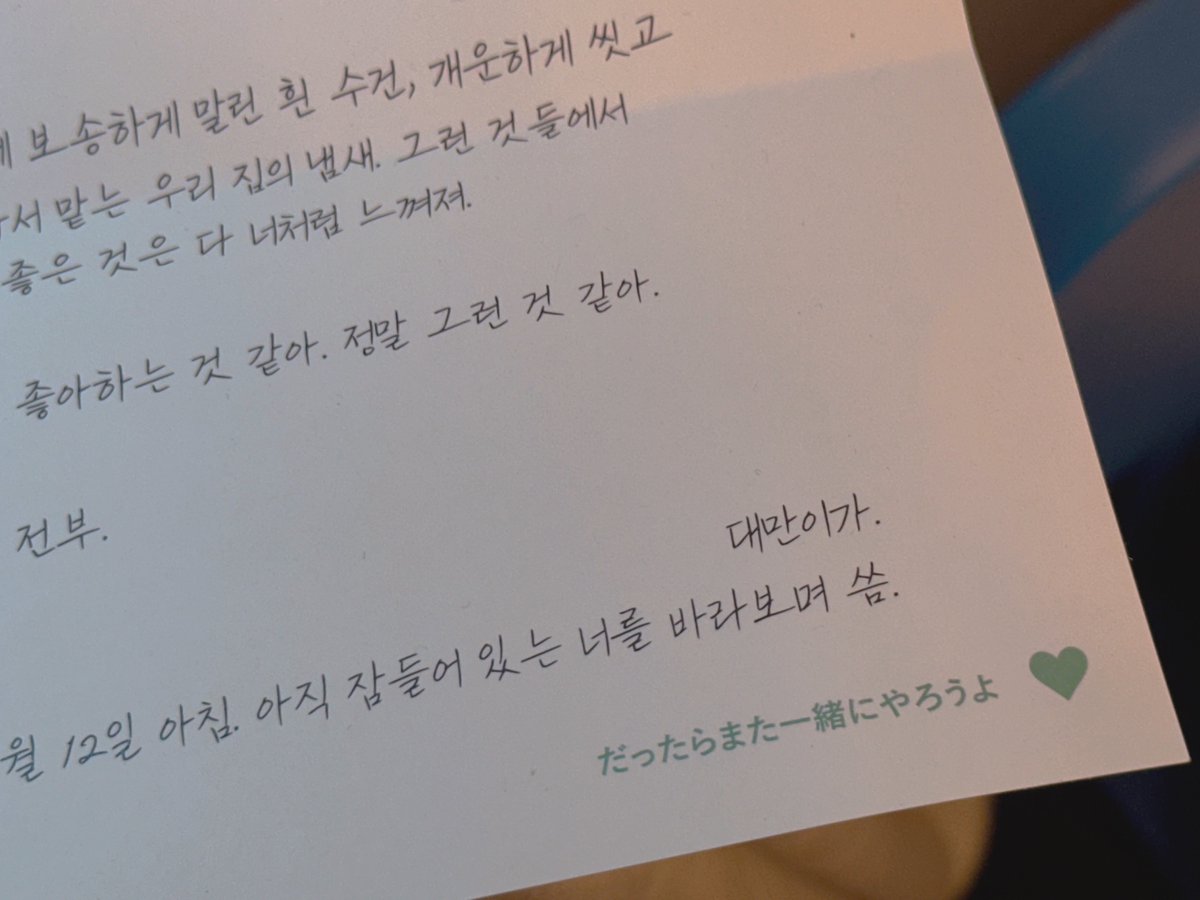 보송하게 말린 흰 수건, 개운하게 씻고
맡는 우리 집의 냄새. 그런 것들에서
좋은 것은 다 너처럼 느껴져.
좋아하는 것 같아. 정말 그런 것 같아.
전부.
대만이가.
월 12일 아침. 아직 잠들어 있는 너를 바라보며 씀.
だったらまた一緒にやろうよ